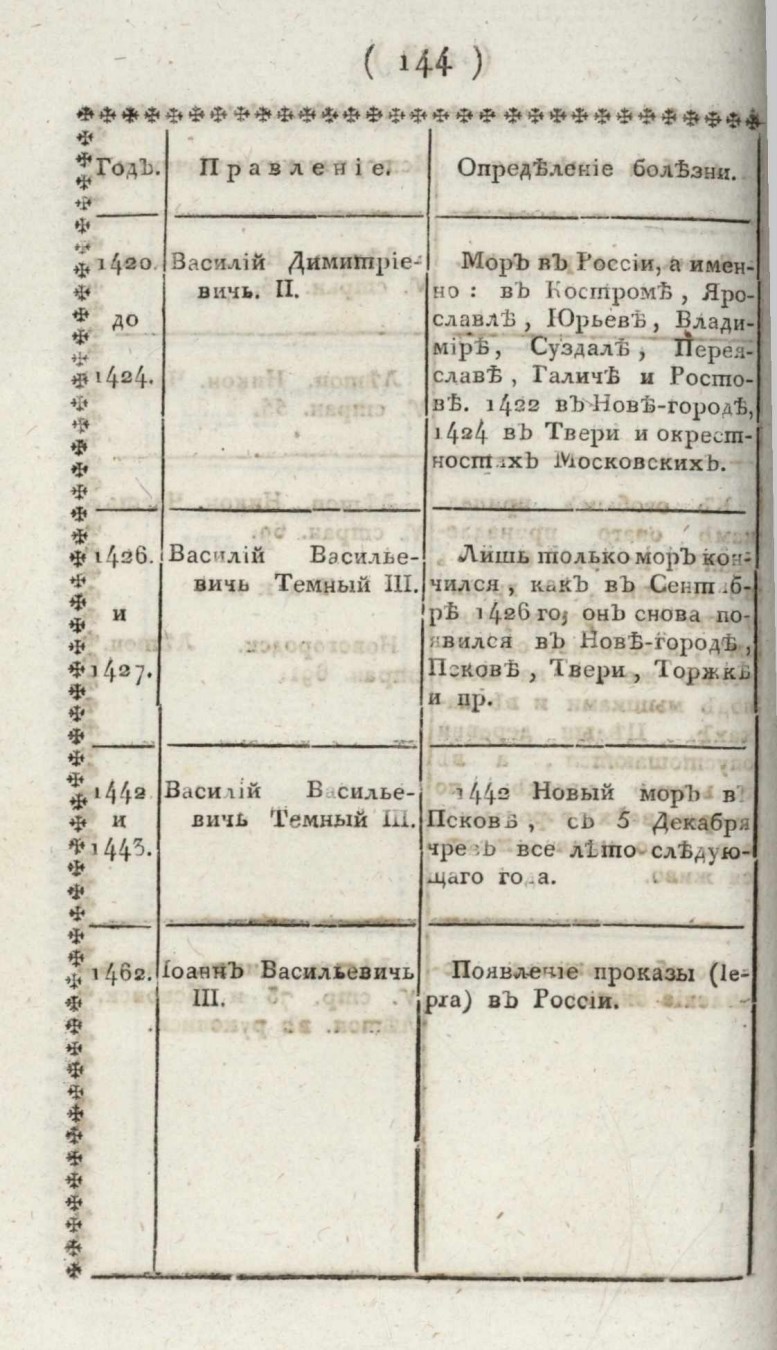 ( 144 )
Годъ.
Правленіе.
Опредѣленіе болѣзни.
1420.
до
1424.
Василій Димитріе-
вичь. II.
Моръ въ Россіи, а имен-
но : въ Костромѣ, Яро-
славлѣ, Юрьевѣ, Влади-
мірѣ, Суздалѣ, Перея-
славѣ, Галичѣ и Росто-
вѣ. 1422 въ Новѣ-городѣ,
1424 въ Твери и окрест-
ностяхъ Московскихъ.
1426.
и
1427.
Василій Василье-
вичь Темный III.
Лишь только моръ кон-
чился, какъ въ Сентяб-
рѣ 1426 го, онъ снова по-
явился въ Новѣ-городѣ,
Псковѣ, Твери, Торжкѣ
и пр.
1442
и
1443.
Василій Василье-
вичь Темный III.
1442 Новый моръ в
Псковѣ, съ 5 Декабря
чрезъ все лѣто слѣдую-
щаго года.
1462.
Іоаннъ Васильевичь
III.
Появленіе проказы (le-
pra) въ Россіи.